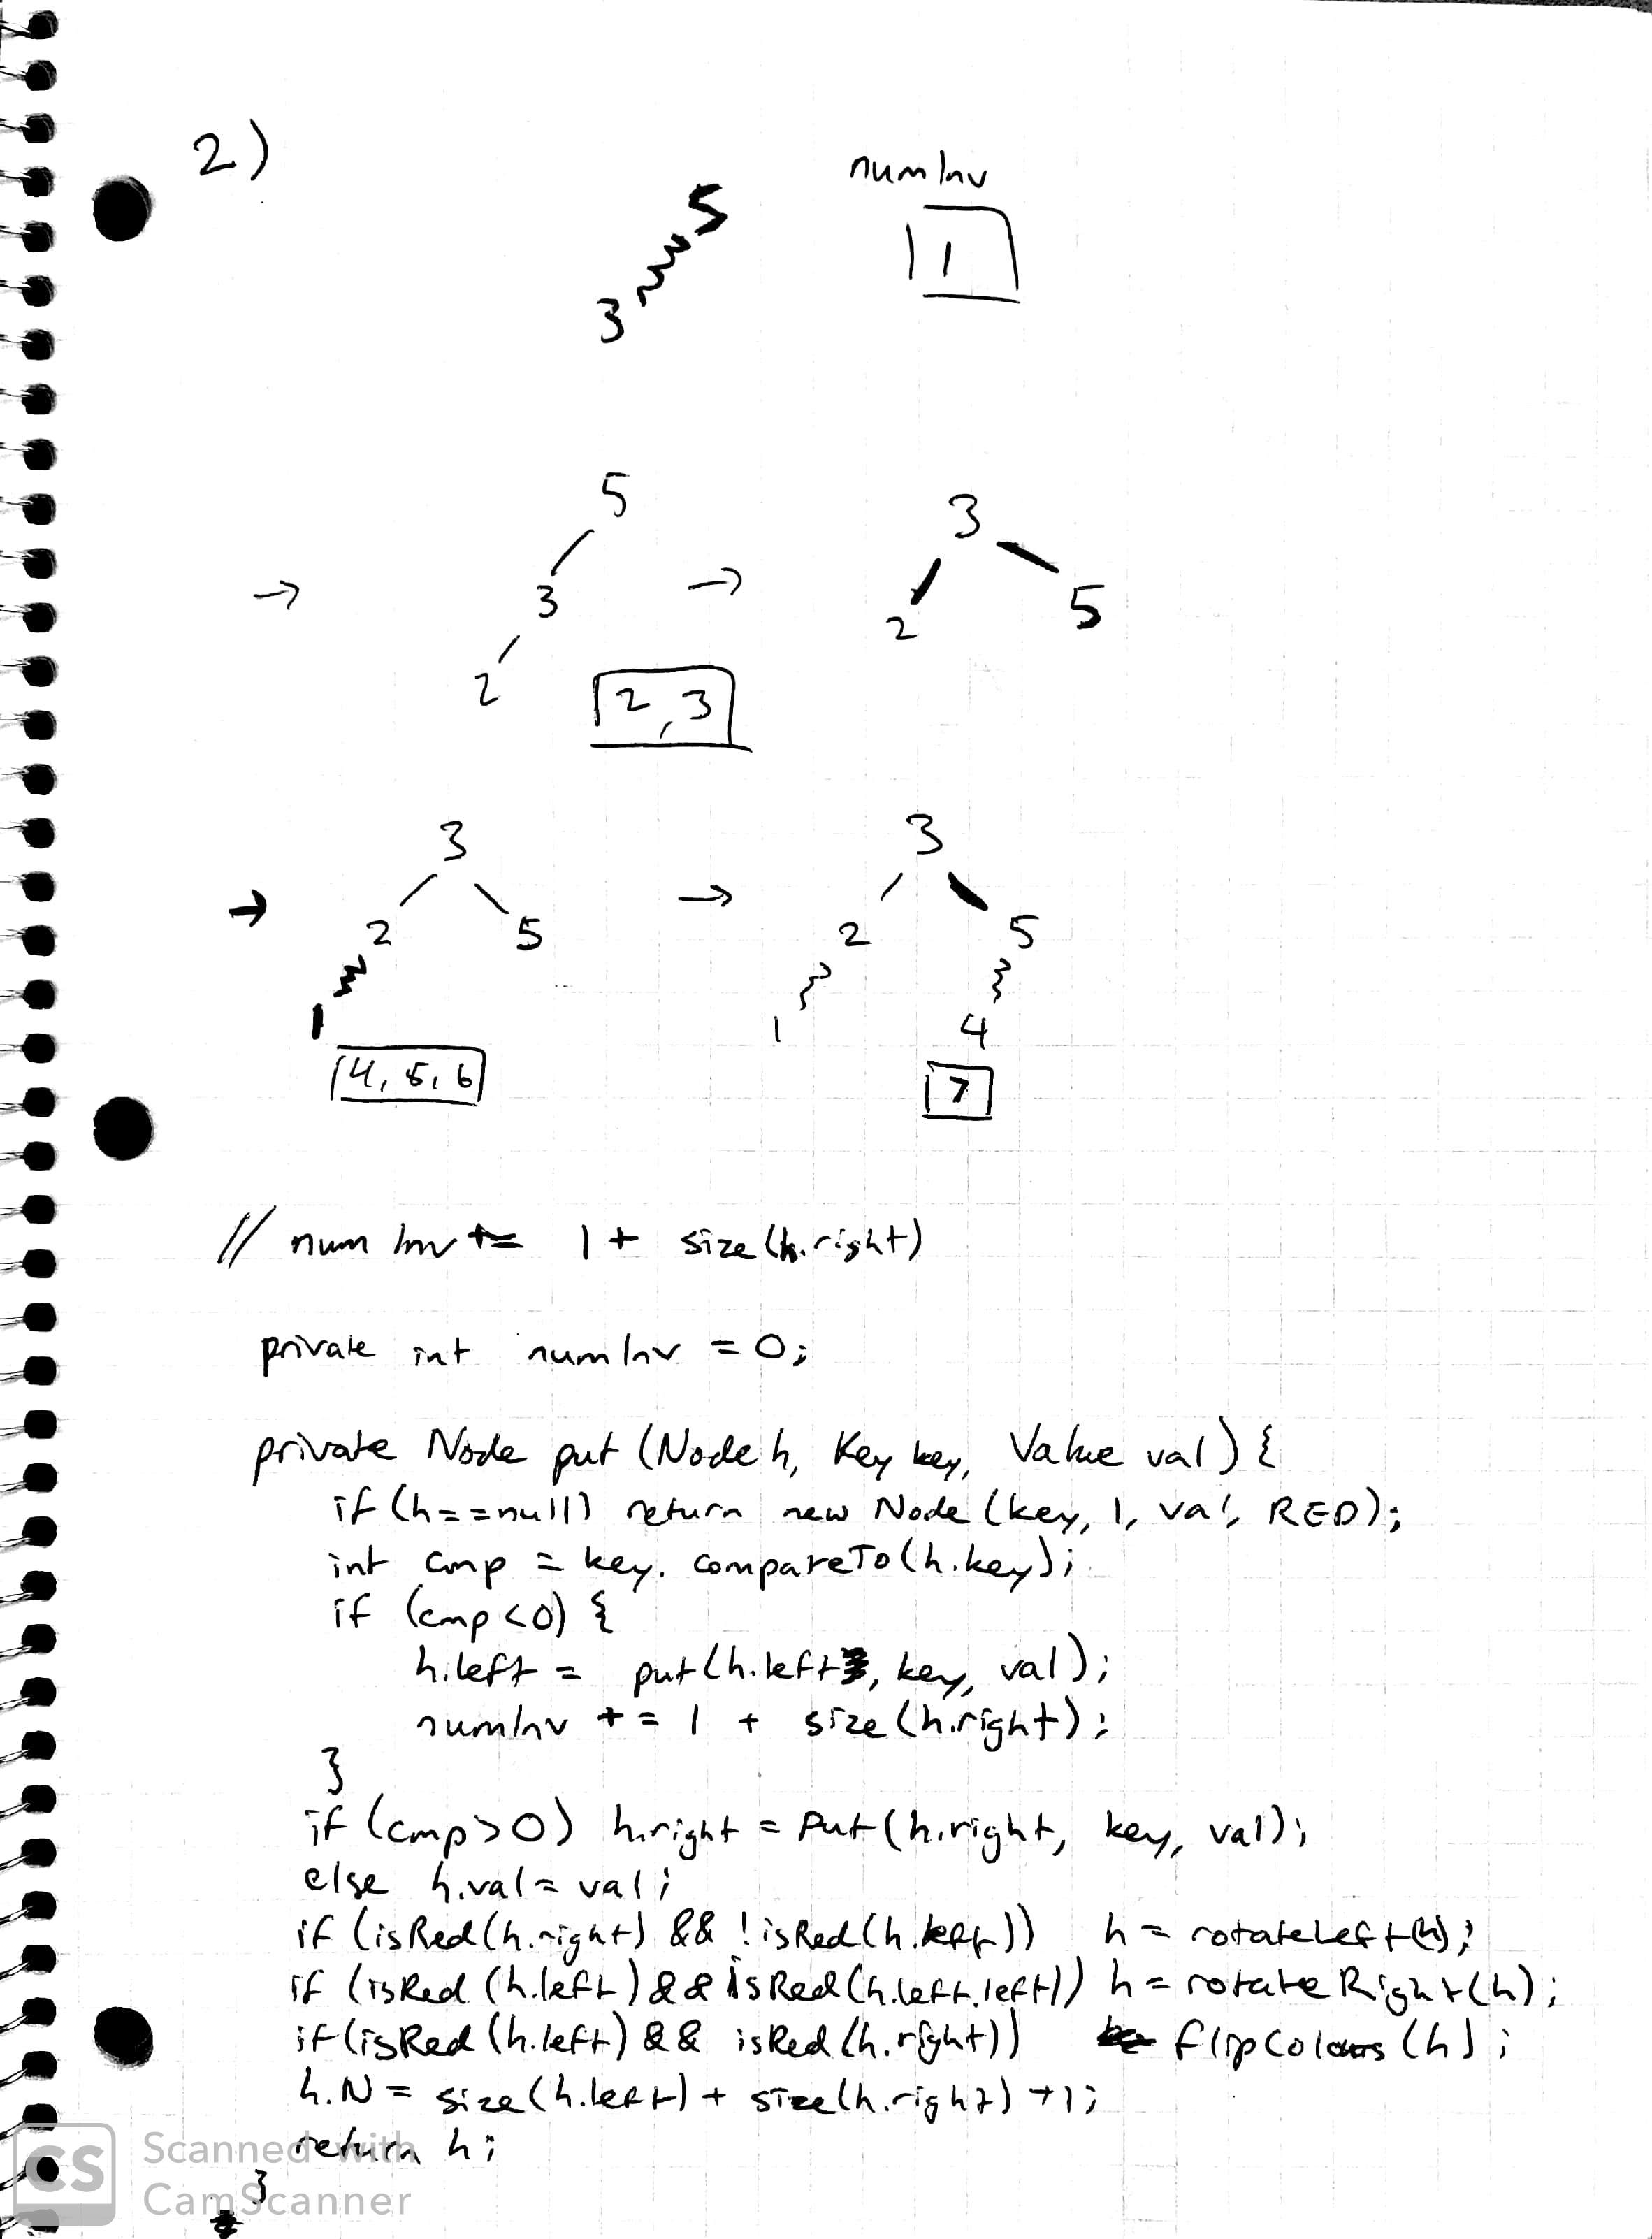 2)
numInv
5
1
3
5
3
→
3
→
2
5
2
2, 3
3
3
→
2
5
→
2
5
1
1
4
4, 5, 6
7
// numInv += 1 + size(h.right)
private int numInv = 0;
private Node put (Node h, Key key, Value val) {
if (h==null) return new Node (key, 1, val, RED);
int cmp = key.compareTo(h.key);
if (cmp<0) {
h.left = put(h.left, key, val);
numInv += 1 + size(h.right);
}
if (cmp>0) h.right = Put(h.right, key, val);
else h.val = val;
if (isRed(h.right) && !isRed(h.left)) h = rotateLeft(h);
if (isRed(h.left) && isRed(h.left.left)) h = rotateRight(h);
if (isRed(h.left) && isRed(h.right)) flipColours(h);
h.N = size(h.left) + size(h.right) +1;
return h;
}
CS Scanned with
CamScanner